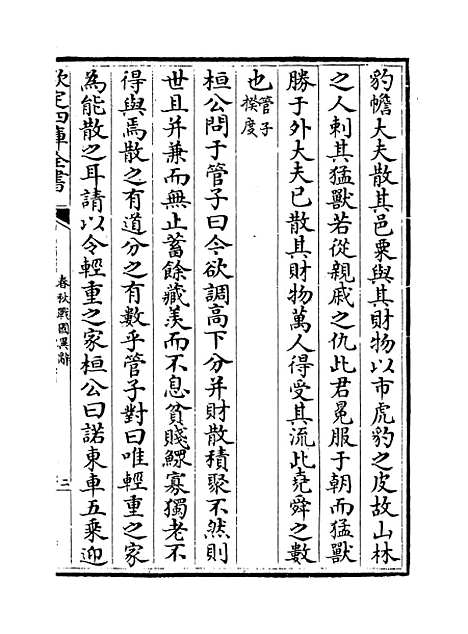 豹幨大夫散其邑粟與其財物以市虎豹之皮故山林
之人刺其猛獸若從親戚之仇此君冕服于朝而猛獸
勝于外大夫已散其財物萬人得受其流此堯舜之數
也管子
揆度
桓公問于管子曰今欲調高下分并財散積聚不然則
世且并兼而無止蓄餘藏羨而不息貧賤鰥寡獨老不
得與焉散之有道分之有數乎管子對曰唯輕重之家
為能散之耳請以令輕重之家桓公曰諾東車五乘迎
欽定四庫全書
春秋戰國異辭